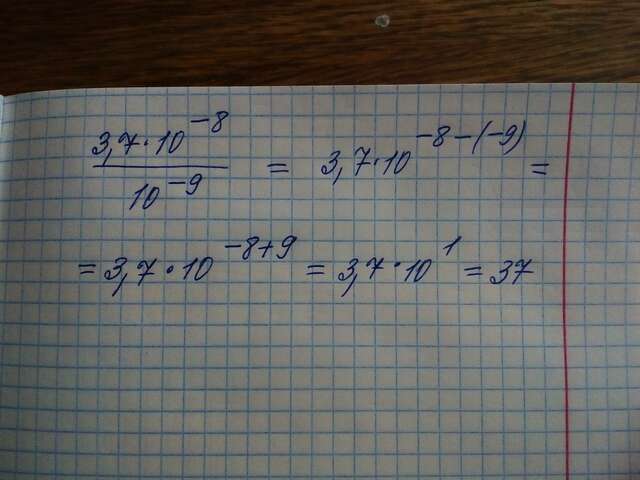 3,7·10⁻⁸/10⁻⁹ = 3,7·10⁻⁸⁻⁽⁻⁹⁾ =
= 3,7·10⁻⁸⁺⁹ = 3,7·10¹ = 37